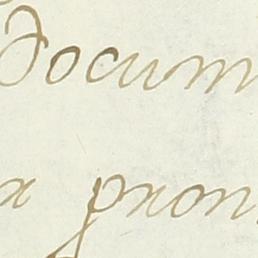 Docum
x pron